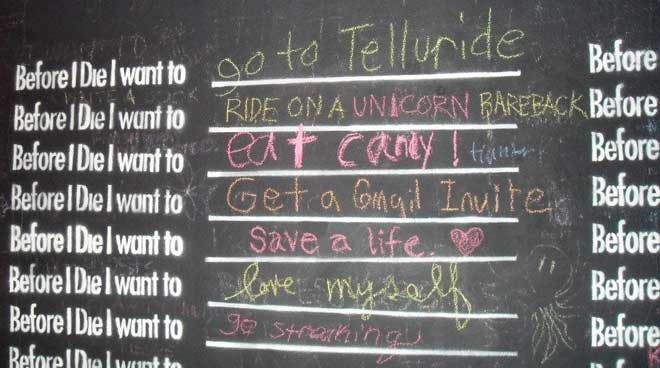 Before I Die I want to go to Telluride Before
Before I Die I want to RIDE ON A UNICORN BAREBACK Before
Before I Die I want to eat candy! Before
Before I Die I want to Get a Gmail Invite Before
Before I Die I want to Save a life. Before
Before I Die I want to love myself Before
Before I Die I want to go streaking Before
Before I Die I want to